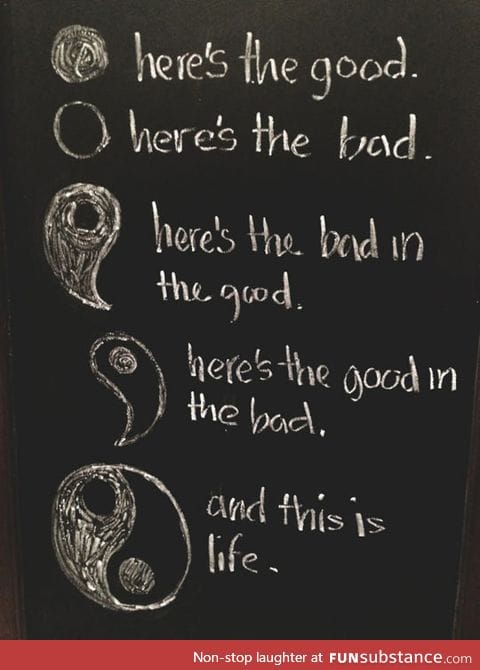 here's the good.
here's the bad.
here's the bad in
the good.
here's the good in
the bad.
and this is
life.
Non-stop laughter at FUNsubstance.com